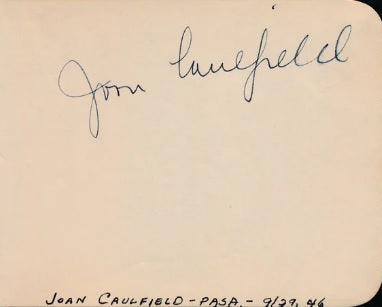 Joan Caulfield
JOAN CAULFIELD - PASA. - 9/29, 46